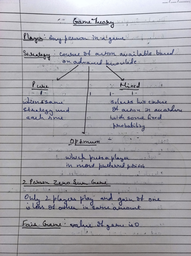 Game Theory
Player - any person in a game
Strategy - course of action available based
on advanced
Pure
Mixed
same
strategy used
each time
course
of action in random
with some fixed
probability
Optimum
which puts a player
in most preferred position
2 Person Zero Sum Game
Only 2 players play and gain of one
is loss of other in same amount
Fair Game - value of game is 0